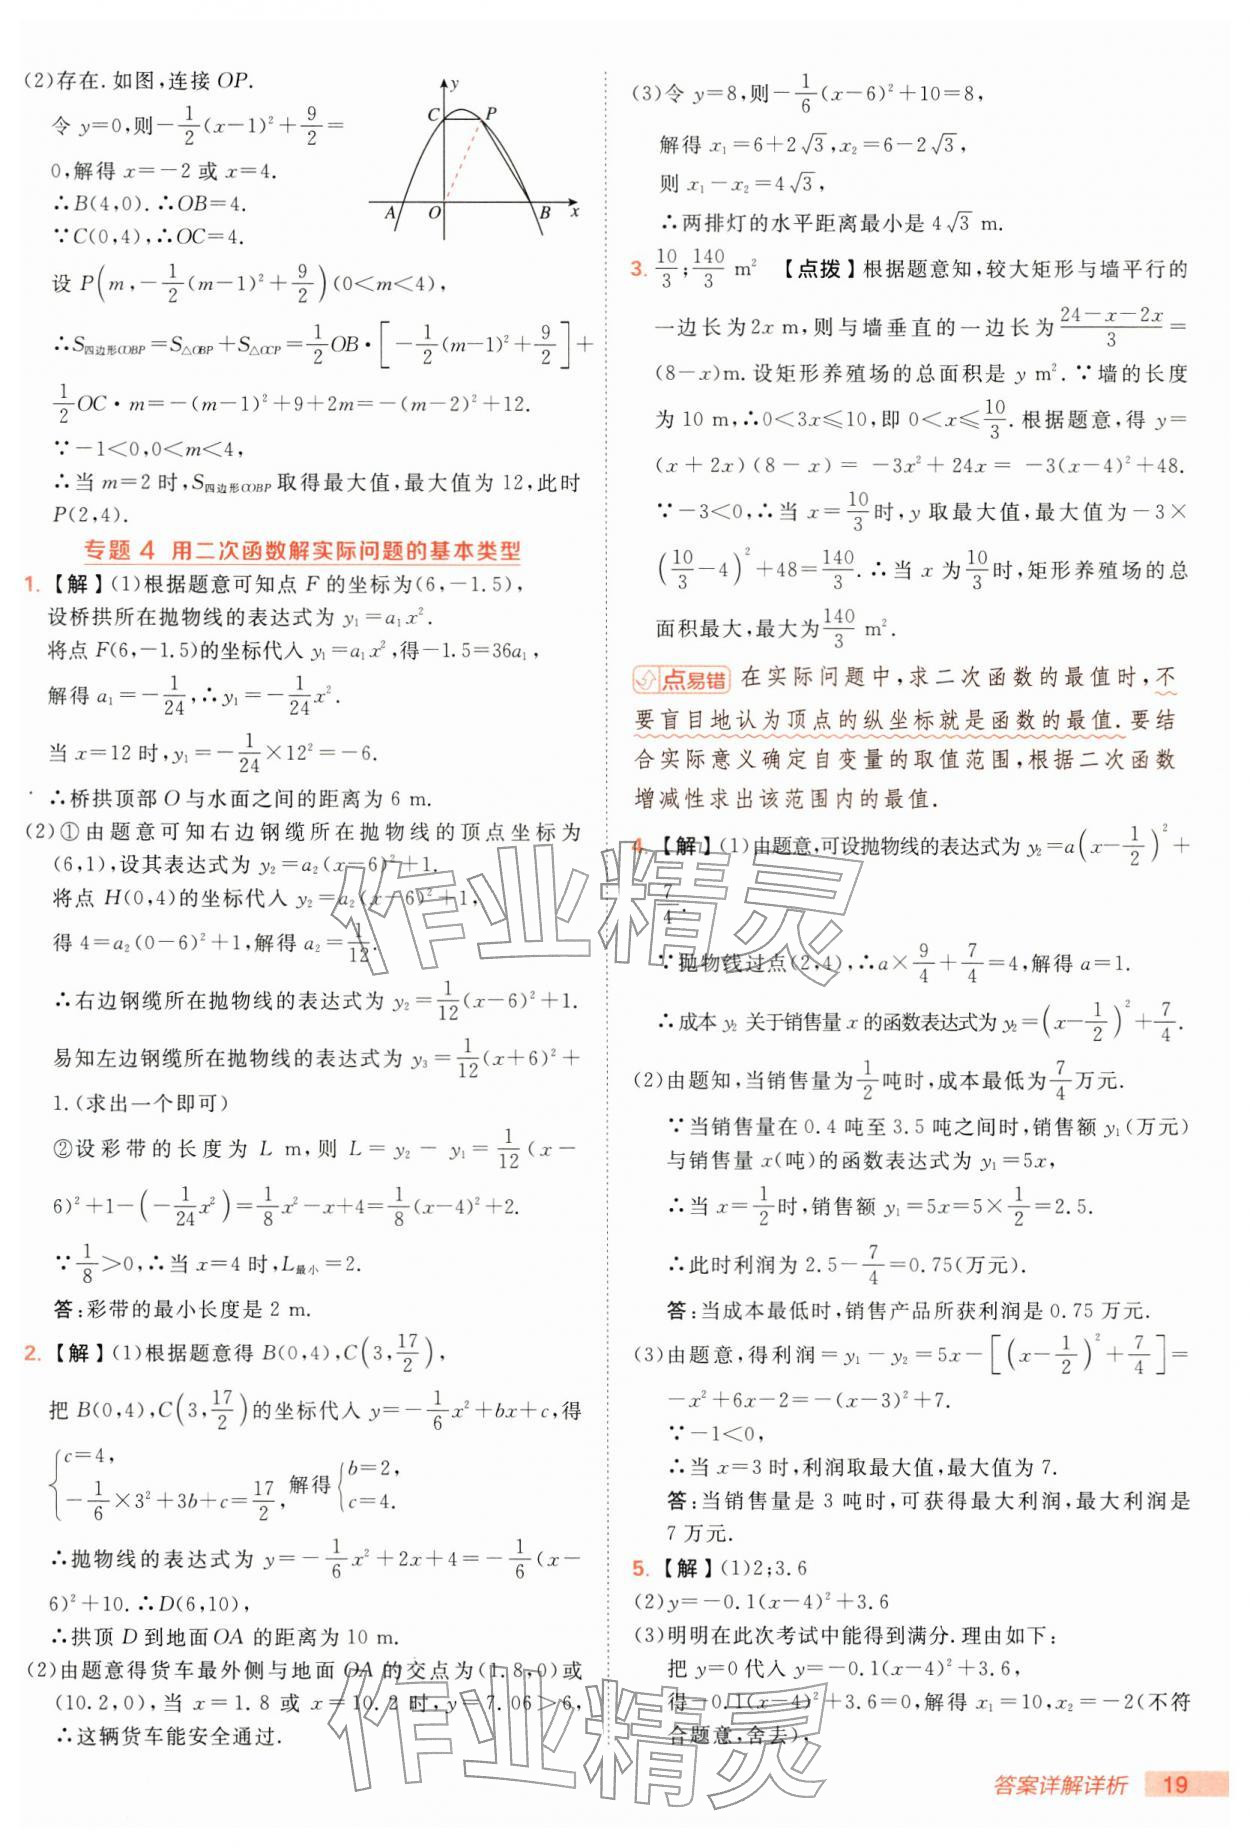 (2)存在.如图,连接 OP.
令 y=0,则-1/2(x-1)²+9/2=
0,解得 x=-2 或 x=4.
∴B(4,0).∴OB=4.
∵C(0,4),∴OC=4.
y
C
P
A
O
B
x
设 P(m,-1/2(m-1)²+9/2)(0<m<4),
∴S四边形COBP=S△OBP+S△OCP=1/2OB·[-1/2(m-1)²+9/2]+
1/2OC·m=-(m-1)²+9+2m=-(m-2)²+12.
∵-1<0,0<m<4,
∴当 m=2 时,S四边形COBP取得最大值,最大值为 12,此时
P(2,4).
专题 4 用二次函数解实际问题的基本类型
1.【解】(1)根据题意可知点 F 的坐标为(6,-1.5),
设桥拱所在抛物线的表达式为 y₁=a₁x².
将点 F(6,-1.5)的坐标代入 y₁=a₁x²,得-1.5=36a₁,
解得 a₁=-1/24,∴y₁=-1/24x².
当 x=12 时,y₁=-1/24×12²=-6.
∴桥拱顶部 O 与水面之间的距离为 6 m.
(2)①由题意可知右边钢缆所在抛物线的顶点坐标为
(6,1),设其表达式为 y₂=a₂(x-6)²+1.
将点 H(0,4)的坐标代入 y₂=a₂(x-6)²+1,
得 4=a₂(0-6)²+1,解得 a₂=1/12.
∴右边钢缆所在抛物线的表达式为 y₂=1/12(x-6)²+1.
易知左边钢缆所在抛物线的表达式为 y₃=1/12(x+6)²+
1.(求出一个即可)
②设彩带的长度为 L m,则 L=y₂-y₁=1/12(x-
6)²+1-(-1/24x²)=1/8x²-x+4=1/8(x-4)²+2.
∵1/8>0,∴当 x=4 时,L最小=2.
答:彩带的最小长度是 2 m.
2.【解】(1)根据题意得 B(0,4),C(3,17/2),
把 B(0,4),C(3,17/2)的坐标代入 y=-1/6x²+bx+c,得
{c=4, -1/6×3²+3b+c=17/2, 解得{b=2, c=4.
∴抛物线的表达式为 y=-1/6x²+2x+4=-1/6(x-
6)²+10.∴D(6,10),
∴拱顶 D 到地面 OA 的距离为 10 m.
(2)由题意得货车最外侧与地面 OA 的交点为(1.8,0)或
(10.2,0),当 x=1.8 或 x=10.2 时,y=7.06>6,
∴这辆货车能安全通过.
(3)令 y=8,则-1/6(x-6)²+10=8,
解得 x₁=6+2√3,x₂=6-2√3,
则 x₁-x₂=4√3,
∴两排灯的水平距离最小是 4√3 m.
3. 10/3;140/3 m² 【点拨】根据题意知,较大矩形与墙平行的
一边长为2x m,则与墙垂直的一边长为(24-x-2x)/3=
(8-x)m.设矩形养殖场的总面积是 y m².∵墙的长度
为 10 m,∴0<3x≤10,即 0<x≤10/3.根据题意,得 y=
(x+2x)(8-x)=-3x²+24x=-3(x-4)²+48.
∵-3<0,∴当 x=10/3时,y 取最大值,最大值为-3×
(10/3-4)²+48=140/3.∴当 x 为10/3时,矩形养殖场的总
面积最大,最大为140/3 m².
点易错 在实际问题中,求二次函数的最值时,不
要盲目地认为顶点的纵坐标就是函数的最值.要结
合实际意义确定自变量的取值范围,根据二次函数
增减性求出该范围内的最值.
4.【解】(1)由题意,可设抛物线的表达式为 y₂=a(x-1/2)²+
7/4.
∵抛物线过点(2,4),∴a×9/4+7/4=4,解得 a=1.
∴成本 y₂ 关于销售量 x 的函数表达式为 y₂=(x-1/2)²+7/4.
(2)由题知,当销售量为1/2吨时,成本最低为7/4万元.
∵当销售量在 0.4 吨至 3.5 吨之间时,销售额 y₁(万元)
与销售量 x(吨)的函数表达式为 y₁=5x,
∴当 x=1/2时,销售额 y₁=5x=5×1/2=2.5.
∴此时利润为 2.5-7/4=0.75(万元).
答:当成本最低时,销售产品所获利润是 0.75 万元.
(3)由题意,得利润=y₁-y₂=5x-[(x-1/2)²+7/4]=
-x²+6x-2=-(x-3)²+7.
∵-1<0,
∴当 x=3 时,利润取最大值,最大值为 7.
答:当销售量是 3 吨时,可获得最大利润,最大利润是
7 万元.
5.【解】(1)2;3.6
(2)y=-0.1(x-4)²+3.6
(3)明明在此次考试中能得到满分.理由如下:
把 y=0 代入 y=-0.1(x-4)²+3.6,
得-0.1(x-4)²+3.6=0,解得 x₁=10,x₂=-2(不符
合题意,舍去),
作业精灵
作业精灵
答案详解详析 19